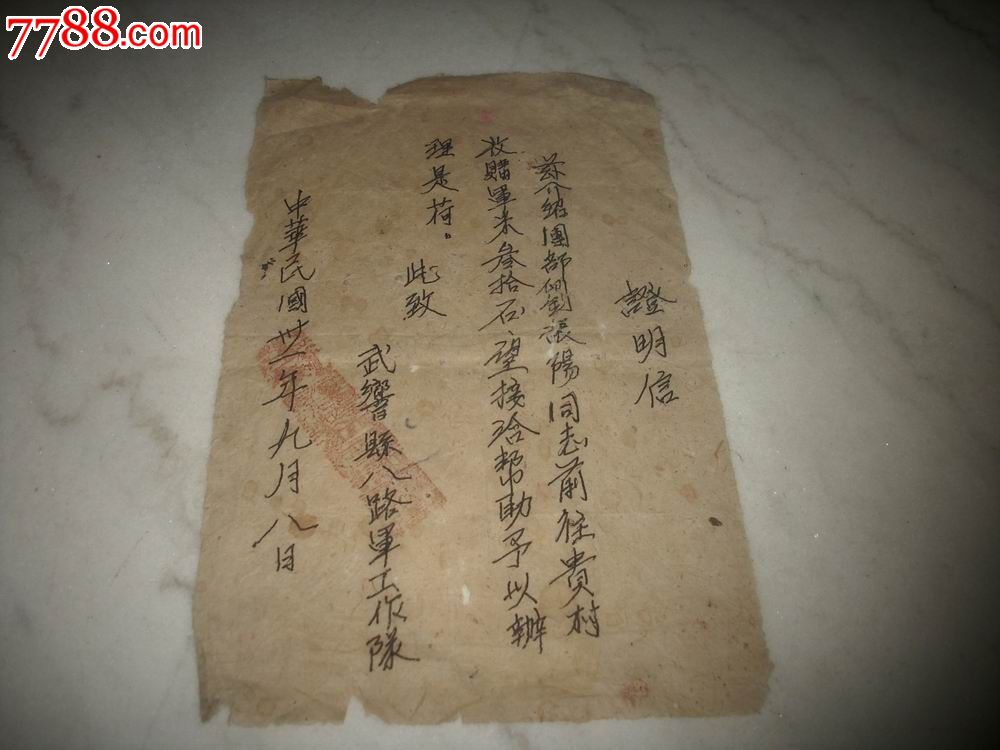 7788.com
證明信
茲介紹團部劉張陽同志前往貴村
收購軍米叁拾石望接洽幫助予以辦
理是荷。
此致
武響縣八路軍工作隊
中華民國卅一年九月八日